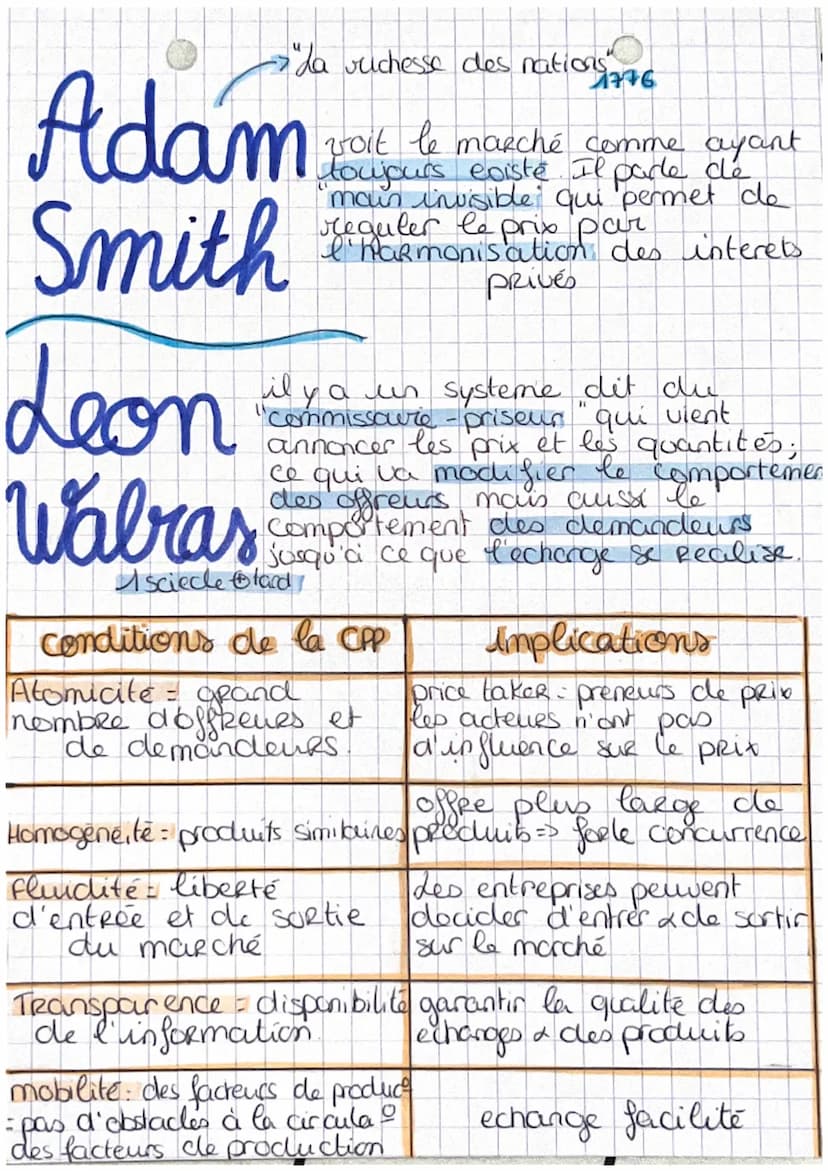 "La richesse des nations"
1776
Adam
Smith
voit le marché comme ayant
toujours existé. Il parle de
"main invisible" qui permet de
reguler le prix par
l'harmonisation des interets
privés
Leon
Walras
1 sciecle ⊕ tard
il y a un systeme dit du
"commissaire-priseur" qui vient
annoncer les prix et les quantités;
ce qui va modifier le comportemen
des offreurs mais aussi le
comportement des demandeurs
jusqu'à ce que l'echange se realise.
conditions de la CPP
Implications
Atomicité = grand
nombre d'offreurs et
de demandeurs.
price taker = preneurs de prix
les acteurs n'ont pas
d'influence sur le prix
Homogéneité = produits similaires
offre plus large de
produits => forte concurrence
fluidité = liberté
d'entrée et de sortie
du marché
Les entreprises peuvent
decider d'entrer & de sortir
sur le marché
Transparence = disponibilité
de l'information.
garantir la qualité des
echanges & des produits
mobilité: des facteurs de produc°
= pas d'obstacles à la circula°
des facteurs de production
echange facilité